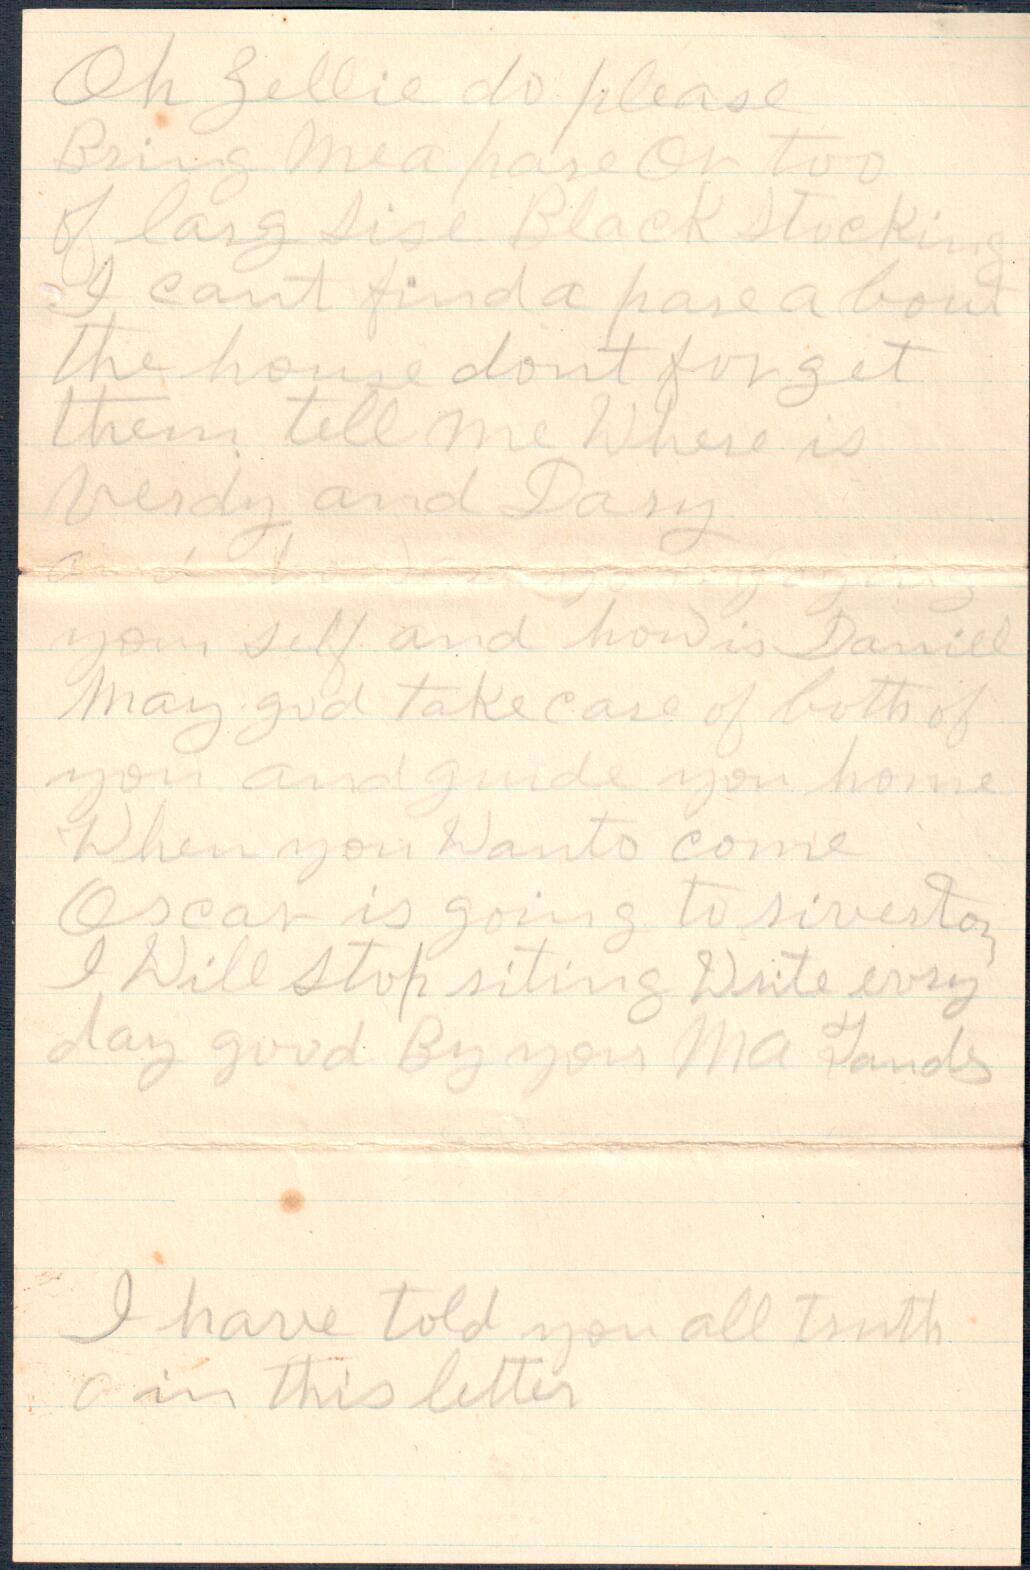 Oh Zellie do please
Bring Me a pare Or too
of larg sise Black stocking
I cant find a pare a bout
the house dont forget
them tell me Where is
Verdy and Dary
your self and how is Daniel
May god take care of both of
you and guide you home
When you Wanto come
Oscar is going to riverton
I Will stop riting Write evry
day good By your MA
I have told you all truth
in this letter